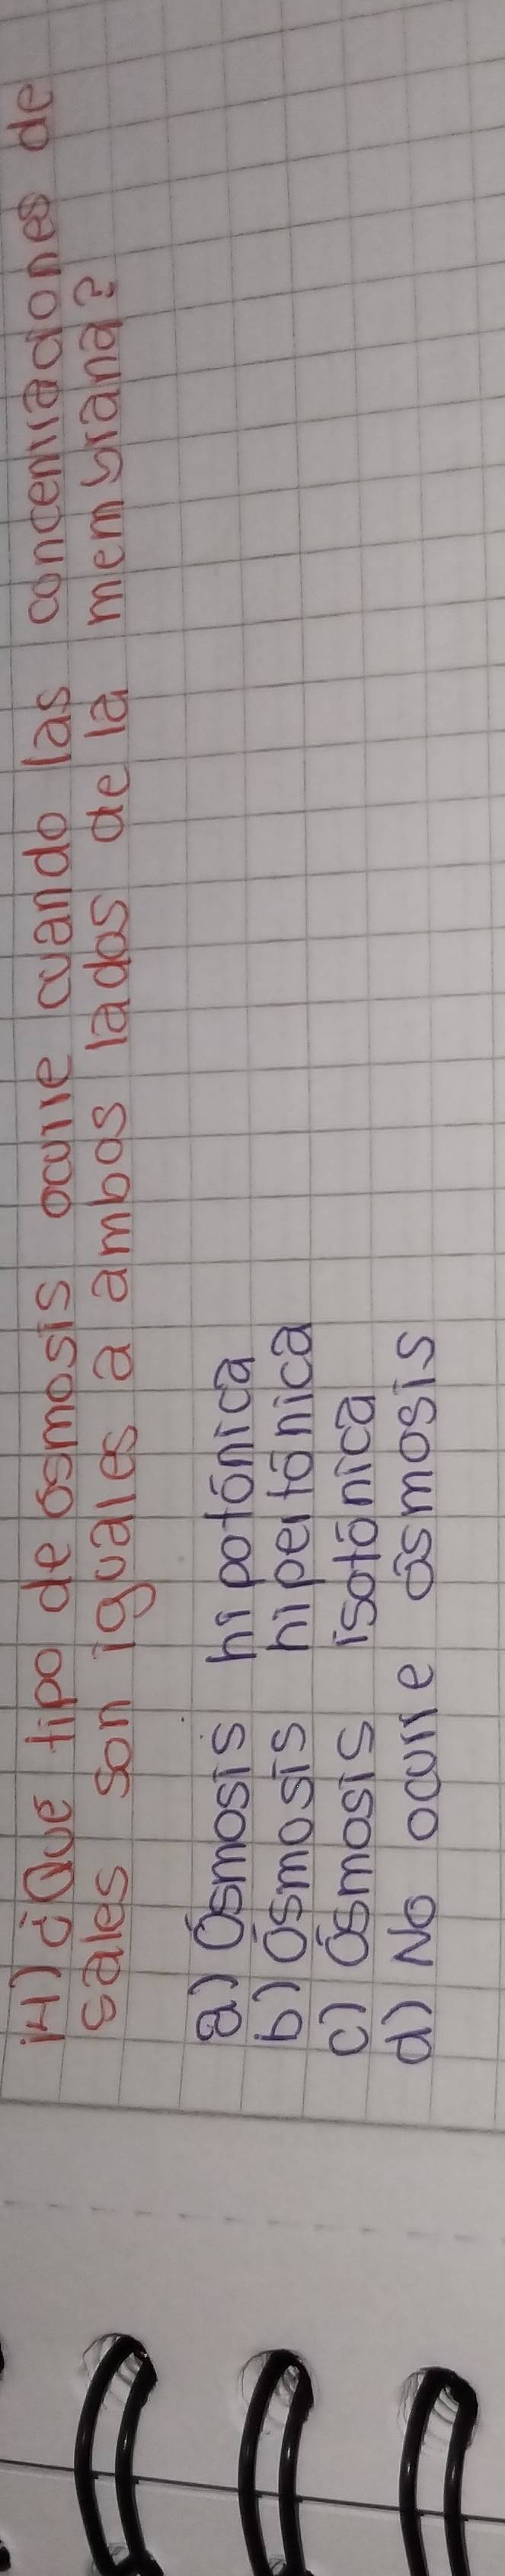 14) ¿Que tipo de ósmosis ocurre cuando las concentraciones de
sales son iguales a ambos lados de la membrana?
a) Ósmosis hipotónica
b) Ósmosis hipertónica
c) Ósmosis isotónica
d) No ocurre ósmosis